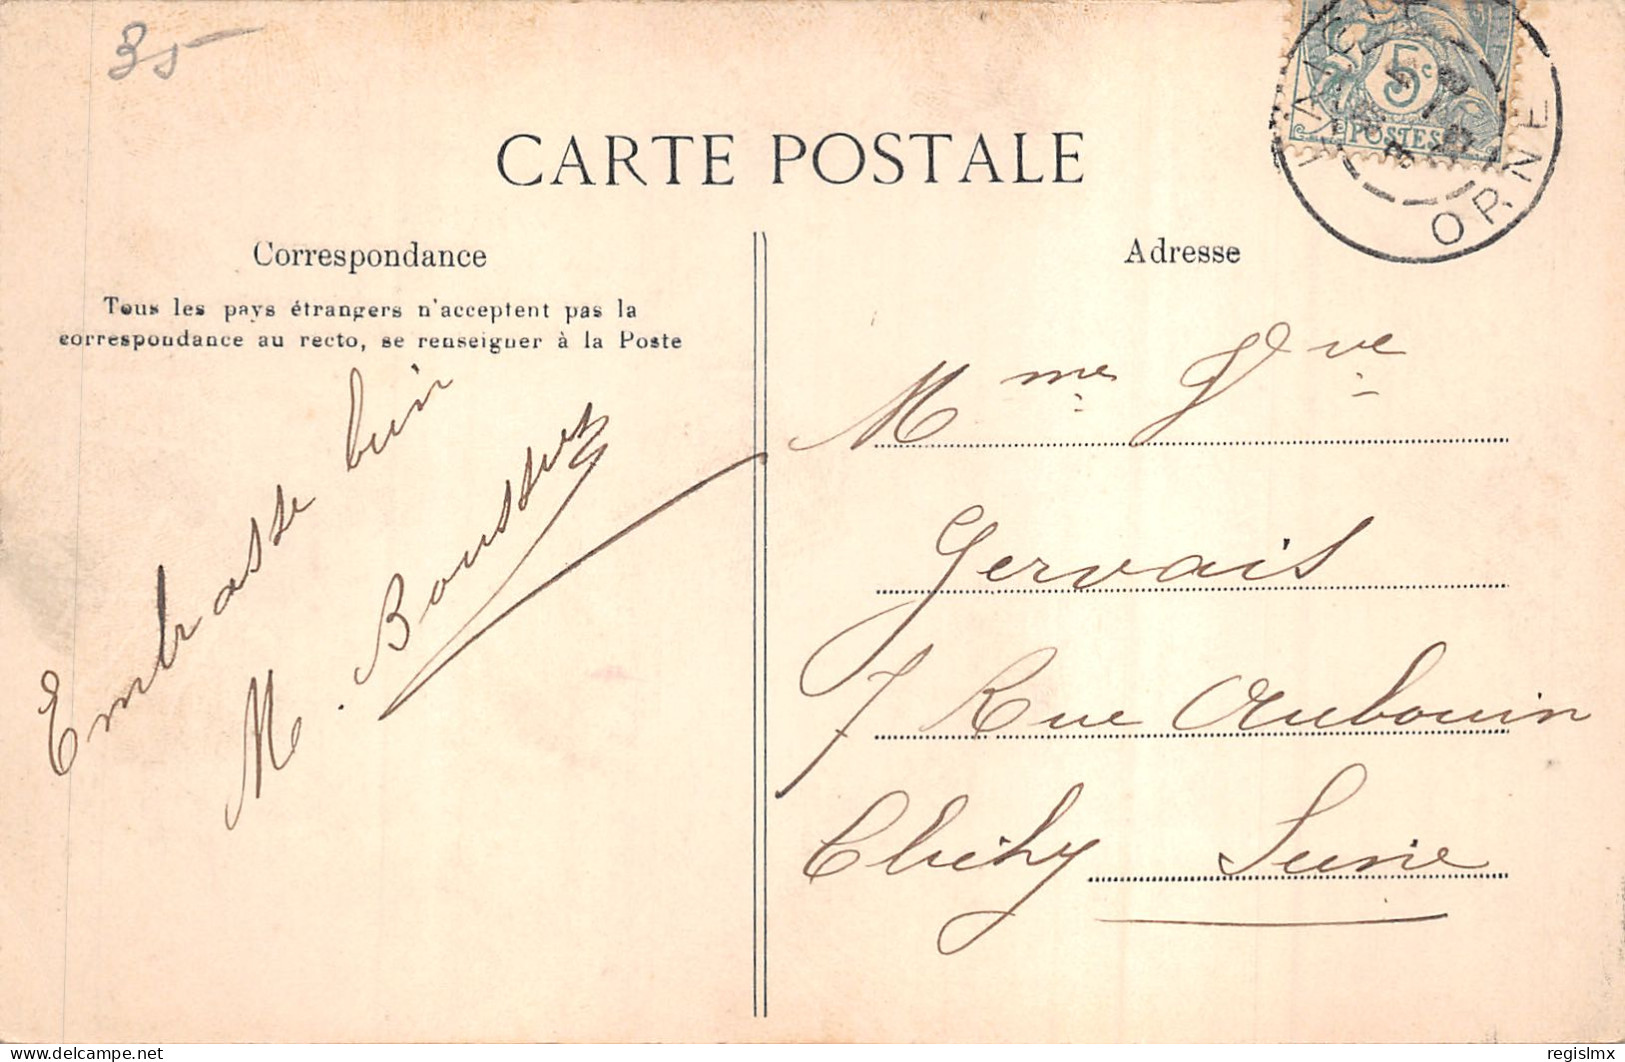 35
CARTE POSTALE
5c
POSTES
ORNE
Correspondance
Tous les pays étrangers n'acceptent pas la
correspondance au recto, se renseigner à la Poste
Embrasse bien
M. Bousses
Adresse
Mme Vve
Gervais
7 Rue Aubouin
Clichy Seine
delcampe.net
regislmx